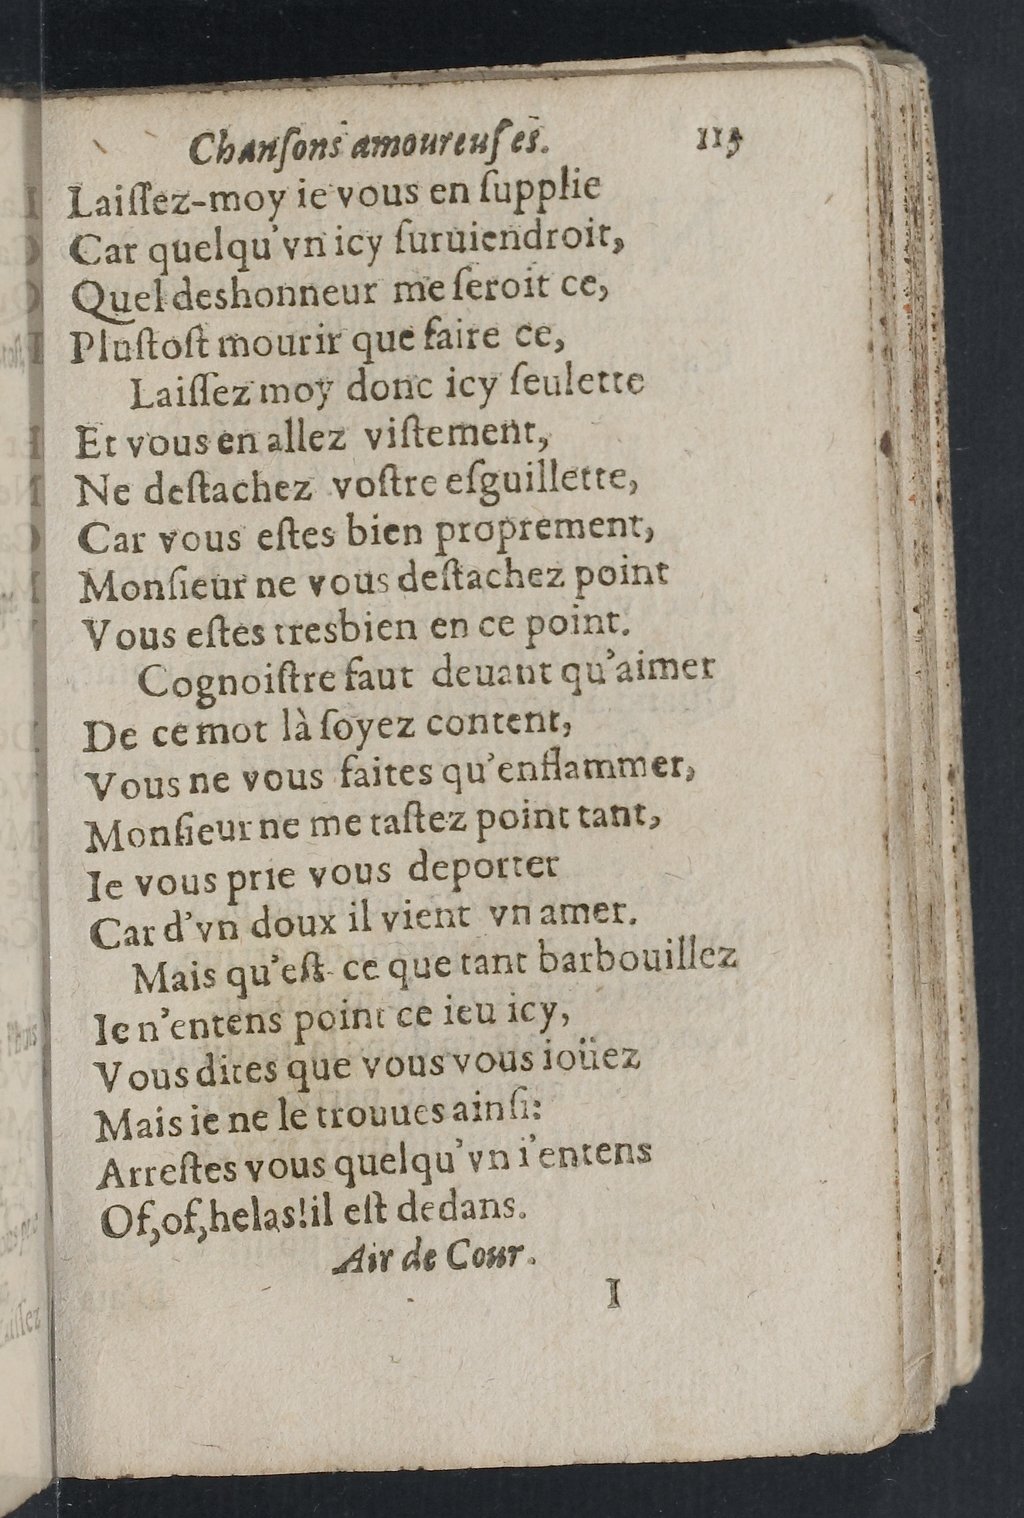 Chanſons amoureuſes. 115
Laiſſez-moy ie vous en ſupplie
Car quelqu'vn icy ſuruiendroit,
Quel deshonneur me ſeroit ce,
Pluſtoſt mourir que faire ce,
Laiſſez moy donc icy ſeulette
Et vous en allez viſtement,
Ne deſtachez voſtre eſguillette,
Car vous eſtes bien proprement,
Monſieur ne vous deſtachez point
Vous eſtes tresbien en ce point.
Cognoiſtre faut deuant qu'aimer
De ce mot là ſoyez content,
Vous ne vous faites qu'enflammer,
Monſieur ne me taſtez point tant,
Ie vous prie vous deporter
Car d'vn doux il vient vn amer.
Mais qu'eſt-ce que tant barbouillez
Ie n'entens point ce ieu icy,
Vous dites que vous vous ioüez
Mais ie ne le trouues ainſi:
Arreſtes vous quelqu'vn i'entens
Of, of, helas! il eſt dedans.
Air de Cour.
I